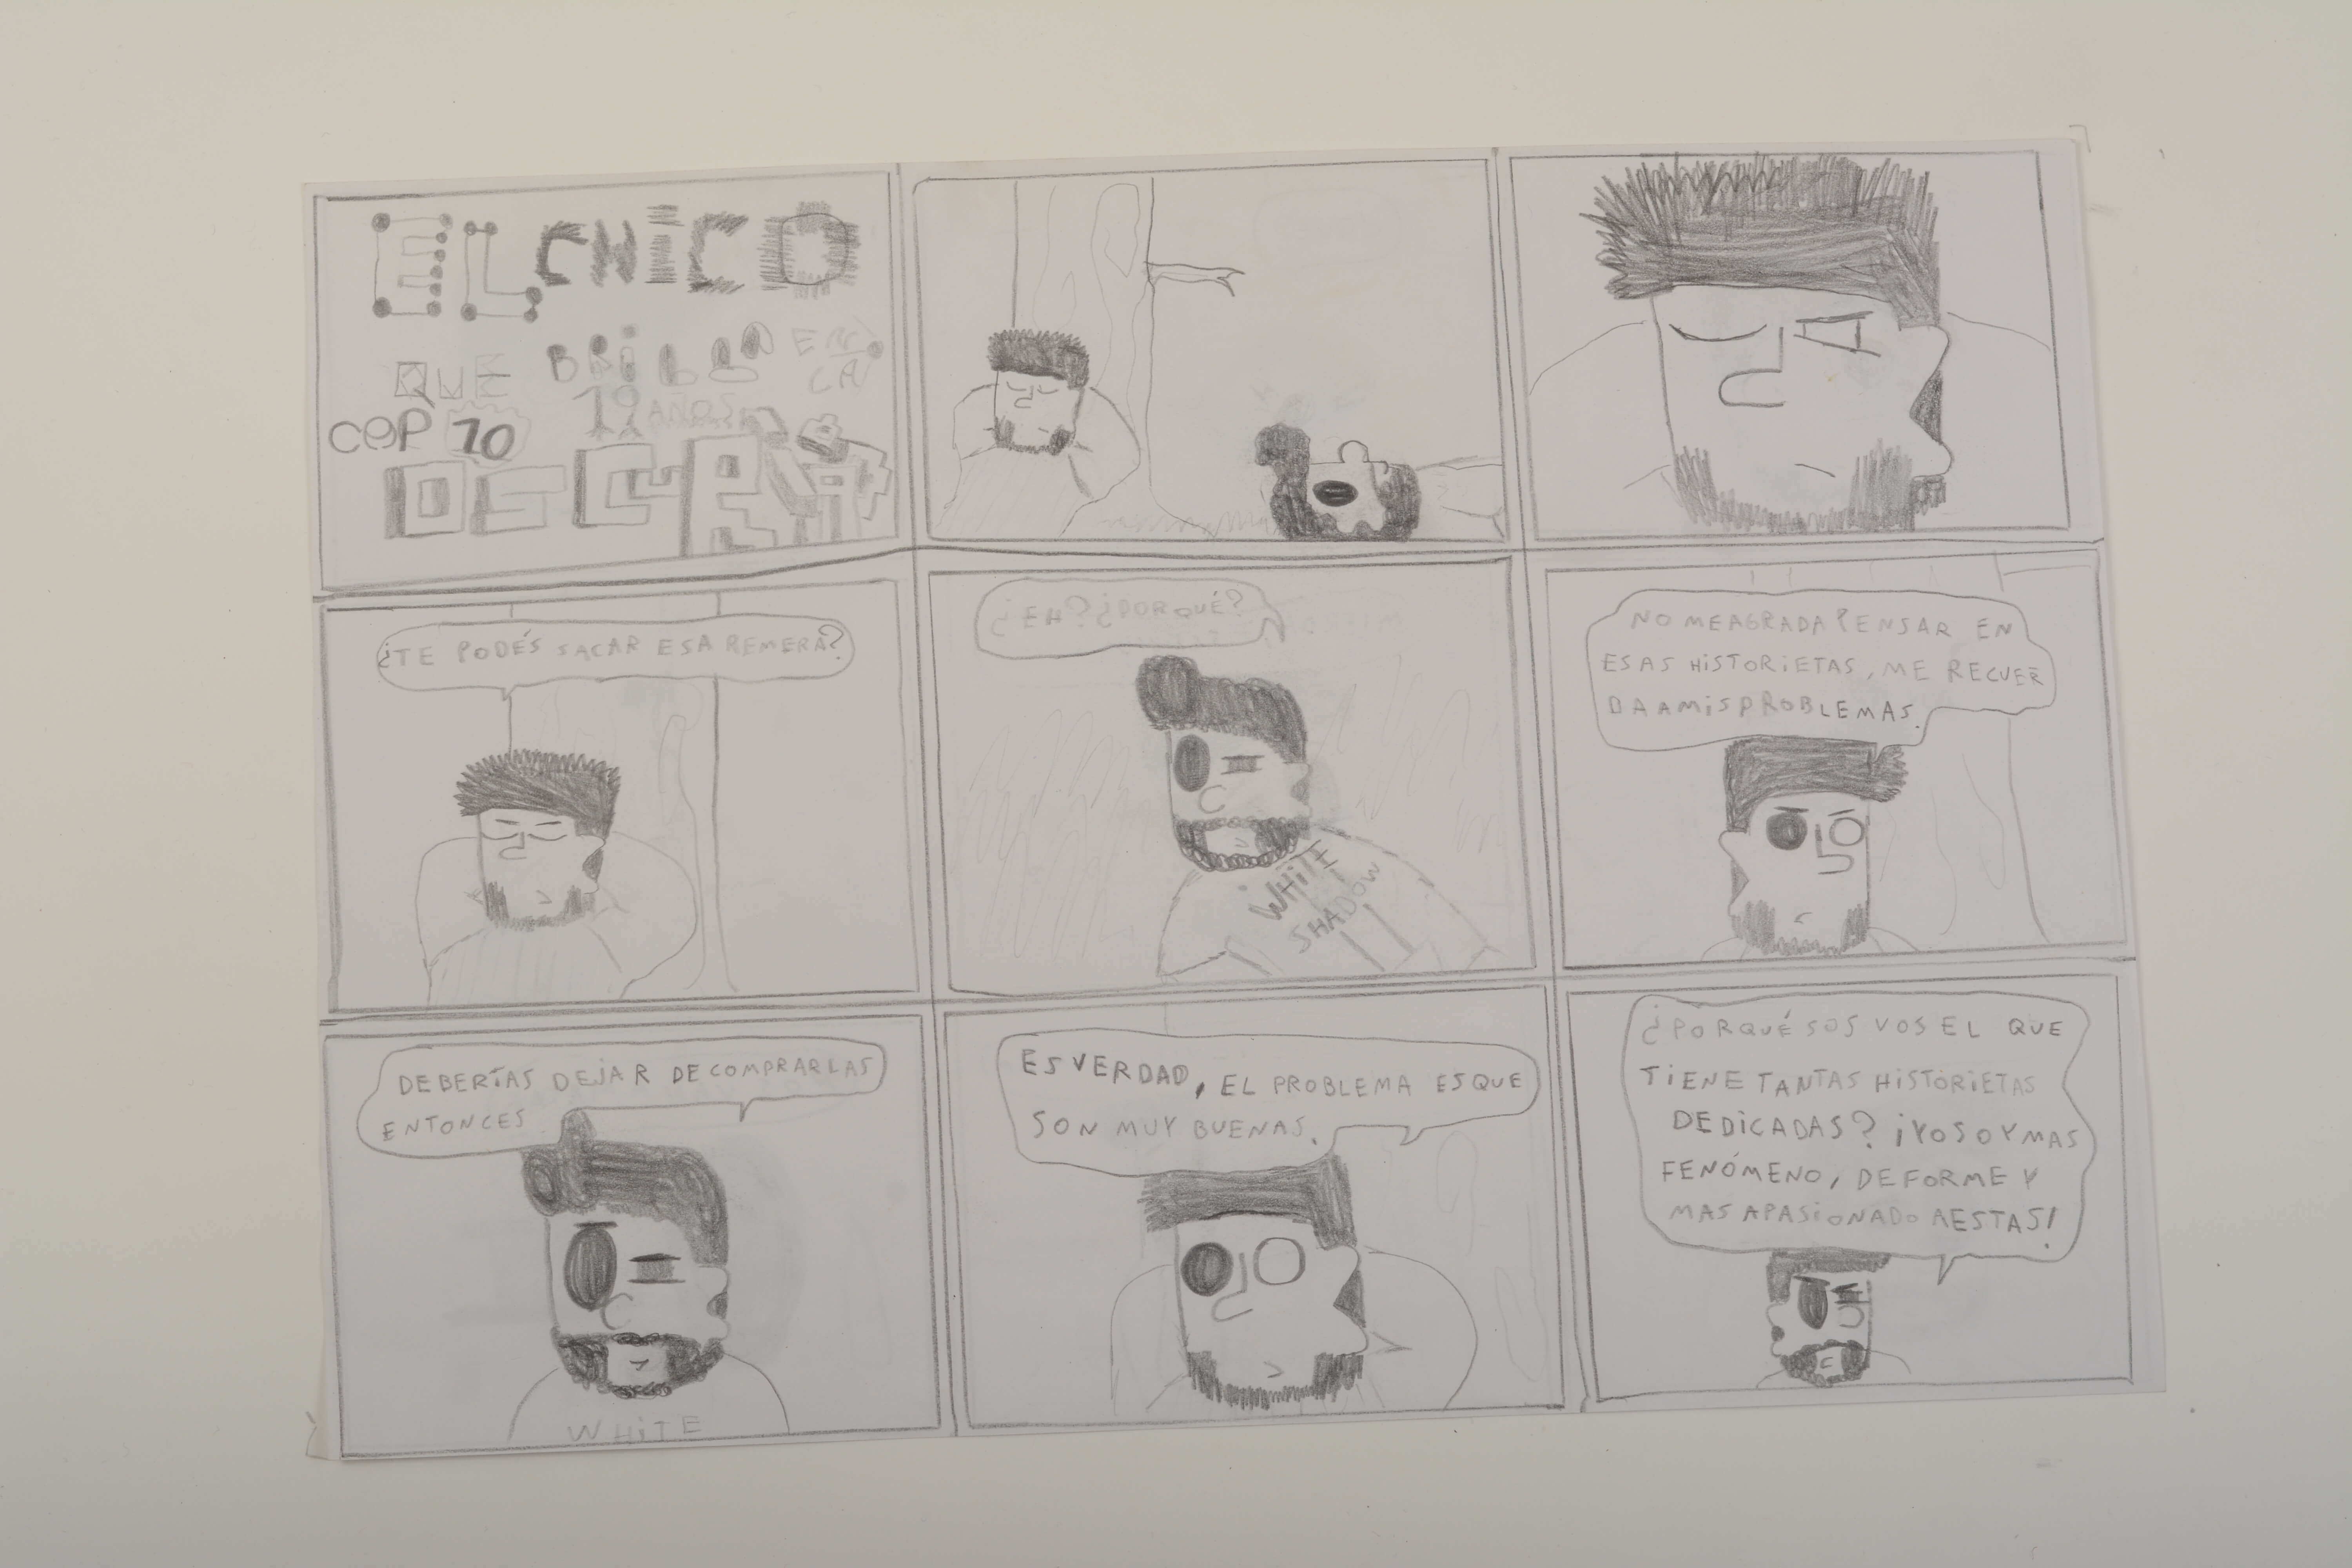 EL CHICO
QUE BRILLA EN LA
CAP 10 19 AÑOS
OSCURIDAD
¿TE PODÉS SACAR ESA REMERA?
¿EH? ¿PORQUÉ?
WHITE
SHADOW
NO ME AGRADA PENSAR EN
ESAS HISTORIETAS, ME RECUER
DA A MIS PROBLEMAS.
DEBERÍAS DEJAR DE COMPRARLAS
ENTONCES
WHITE
ES VERDAD, EL PROBLEMA ES QUE
SON MUY BUENAS.
¿PORQUÉ SOS VOS EL QUE
TIENE TANTAS HISTORIETAS
DEDICADAS? ¡YO SOY MAS
FENÓMENO, DEFORME Y
MAS APASIONADO A ESTAS!